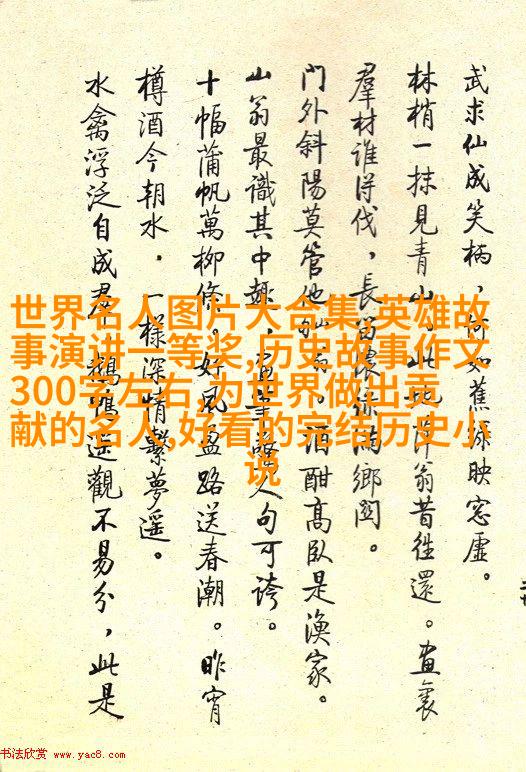 武求仙成笑柄，何如蕉綠映窓虛。
林梢一抹見青山，此地萍翁昔往還。畫裏
羣材誰得伐，長留濃綠滿鄉関。
門外斜陽莫管他，。酒酣高臥是漁家。
山翁最識其中趣，人句可誇。
十幅蒲帆萬柳條。好風盈路送春潮。昨宵
樽酒今朝水，一樣深情繫夢遥。
水禽浮泛自成群，鵝鴨遥觀不易分，此是
世界名人图片大合集,英雄故
事演讲一等奖,历史故事作文
300字左右,为世界做出贡
献的名人,好看的完结历史小
说
书法欣赏 www.yac8.com